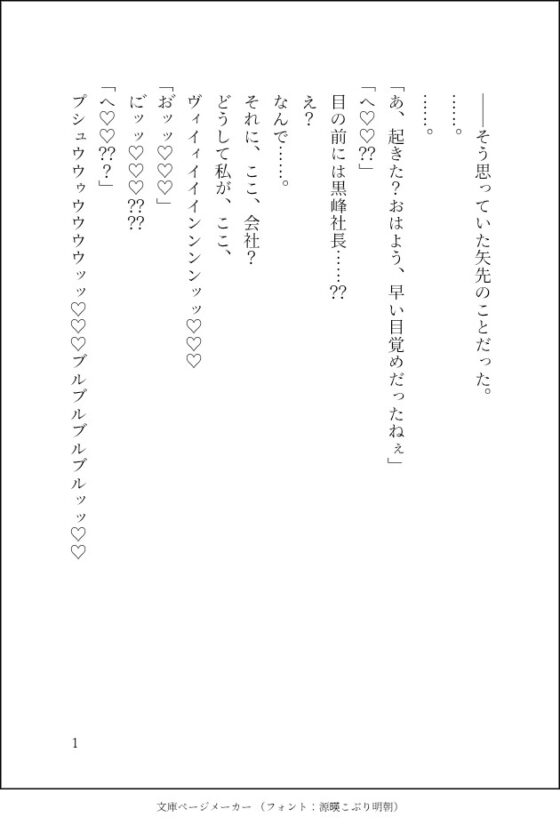 ――そう思っていた矢先のことだった。
……。
……。
「あ、起きた？おはよう、早い目覚めだったねぇ」
「へ♡♡⁇」
目の前には黒峰社長……⁇
え？
なんで……。
それに、ここ、会社？
どうして私が、ここ、
ヴィイィイイインンンンッッ♡♡♡
「お゙ッッ♡♡♡」
に゙ッッ♡♡♡⁇⁇
「へ♡♡⁇？」
プシュウウゥウウウウッッ♡♡♡ブルブルブルブルッッ♡♡
1
文庫ページメーカー（フォント：源暎こぶり明朝）